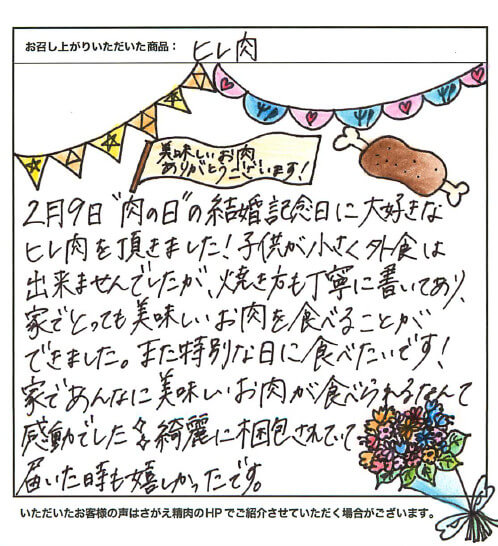 お召し上がりいただいた商品： ヒレ肉
美味しいお肉
ありがとうございます！
2月9日"肉の日"の結婚記念日に大好きな
ヒレ肉を頂きました！子供が小さく外食は
出来ませんでしたが、焼き方も丁寧に書いてあり、
家でとっても美味しいお肉を食べることが
できました。また特別な日に食べたいです！
家であんなに美味しいお肉が食べられるなんて
感動でした 綺麗に梱包されていて
届いた時も嬉しかったです。
いただいたお客様の声はさがえ精肉のHPでご紹介させていただく場合がございます。